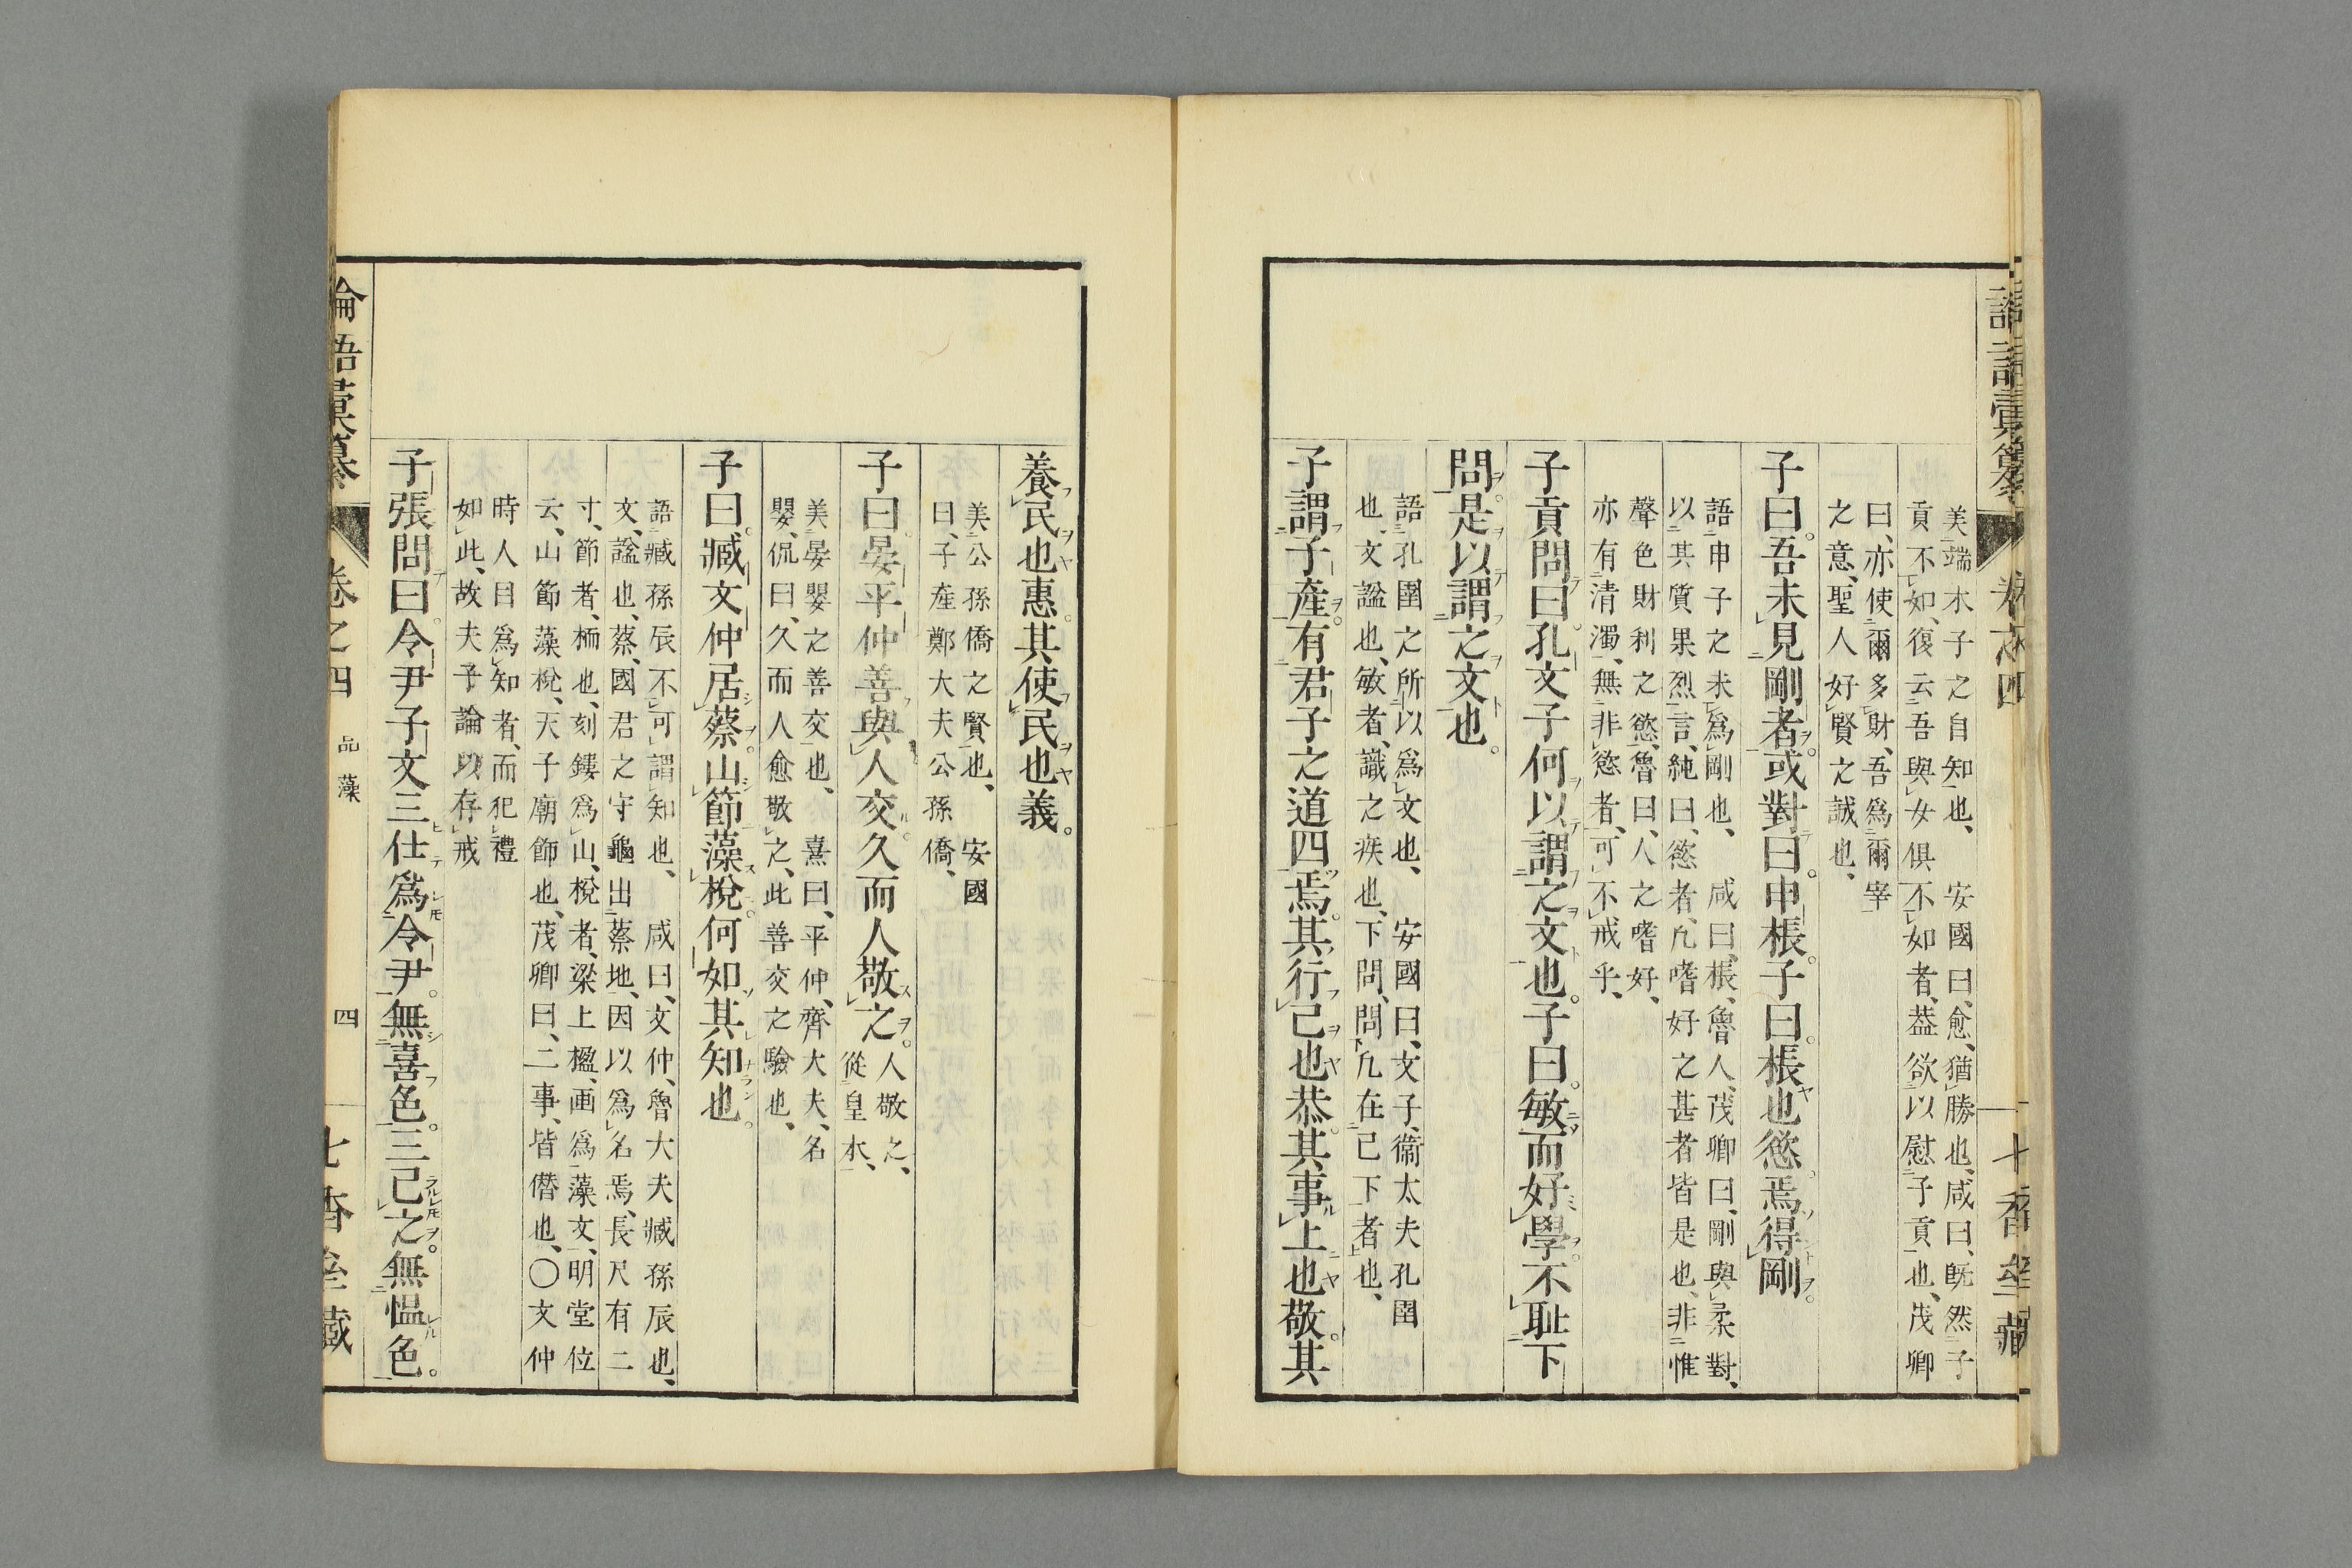 美端木子之自知也、安國曰、愈、猶勝也、咸曰、既然子
貢不如、復云吾與女俱不如者、葢欲以慰子貢也、茂卿
曰、亦使爾多財、吾爲爾宰
之意、聖人好賢之誠也、
子曰。吾未見剛者。或對曰。申棖。子曰。棖也慾。焉得剛。
語申子之未爲剛也、咸曰、棖、魯人、茂卿曰、剛與柔對、
以其質果烈言、純曰、慾者、凢嗜好之甚者皆是也、非惟
聲色財利之慾、魯曰、人之嗜好、
亦有清濁、無非慾者、可不戒乎、
子貢問曰。孔文子何以謂之文也。子曰。敏而好學。不耻下
問。是以謂之文也。
語孔圉之所以爲文也、安國曰、文子、衞太夫孔圉
也、文諡也、敏者、識之疾也、下問、問凢在己下者也、
子謂子產。有君子之道四焉。其行己也恭。其事上也敬。其
養民也惠。其使民也義。
美公孫僑之賢也、安國
曰、子產鄭大夫公孫僑、
子曰。晏平仲善與人交。久而人敬之。人敬之、
從皇本、
美晏嬰之善交也、熹曰、平仲、齊大夫、名
嬰、侃曰、久而人愈敬之、此善交之驗也、
子曰。臧文仲居蔡。山節藻梲。何如其知也。
語臧孫辰不可謂知也、咸曰、文仲、魯大夫臧孫辰也、
文、諡也、蔡、國君之守龜出蔡地、因以爲名焉、長尺有二
寸、節者、栭也、刻鏤爲山、梲者、梁上楹、画爲藻文、明堂位
云、山節藻梲、天子廟飾也、茂卿曰、二事、皆僭也、〇文仲
時人目爲知者、而犯禮
如此、故夫子論以存戒
子張問曰。令尹子文三仕爲令尹。無喜色。三已之。無慍色。
論語彙纂 卷之四 品藻 四 七香塾藏